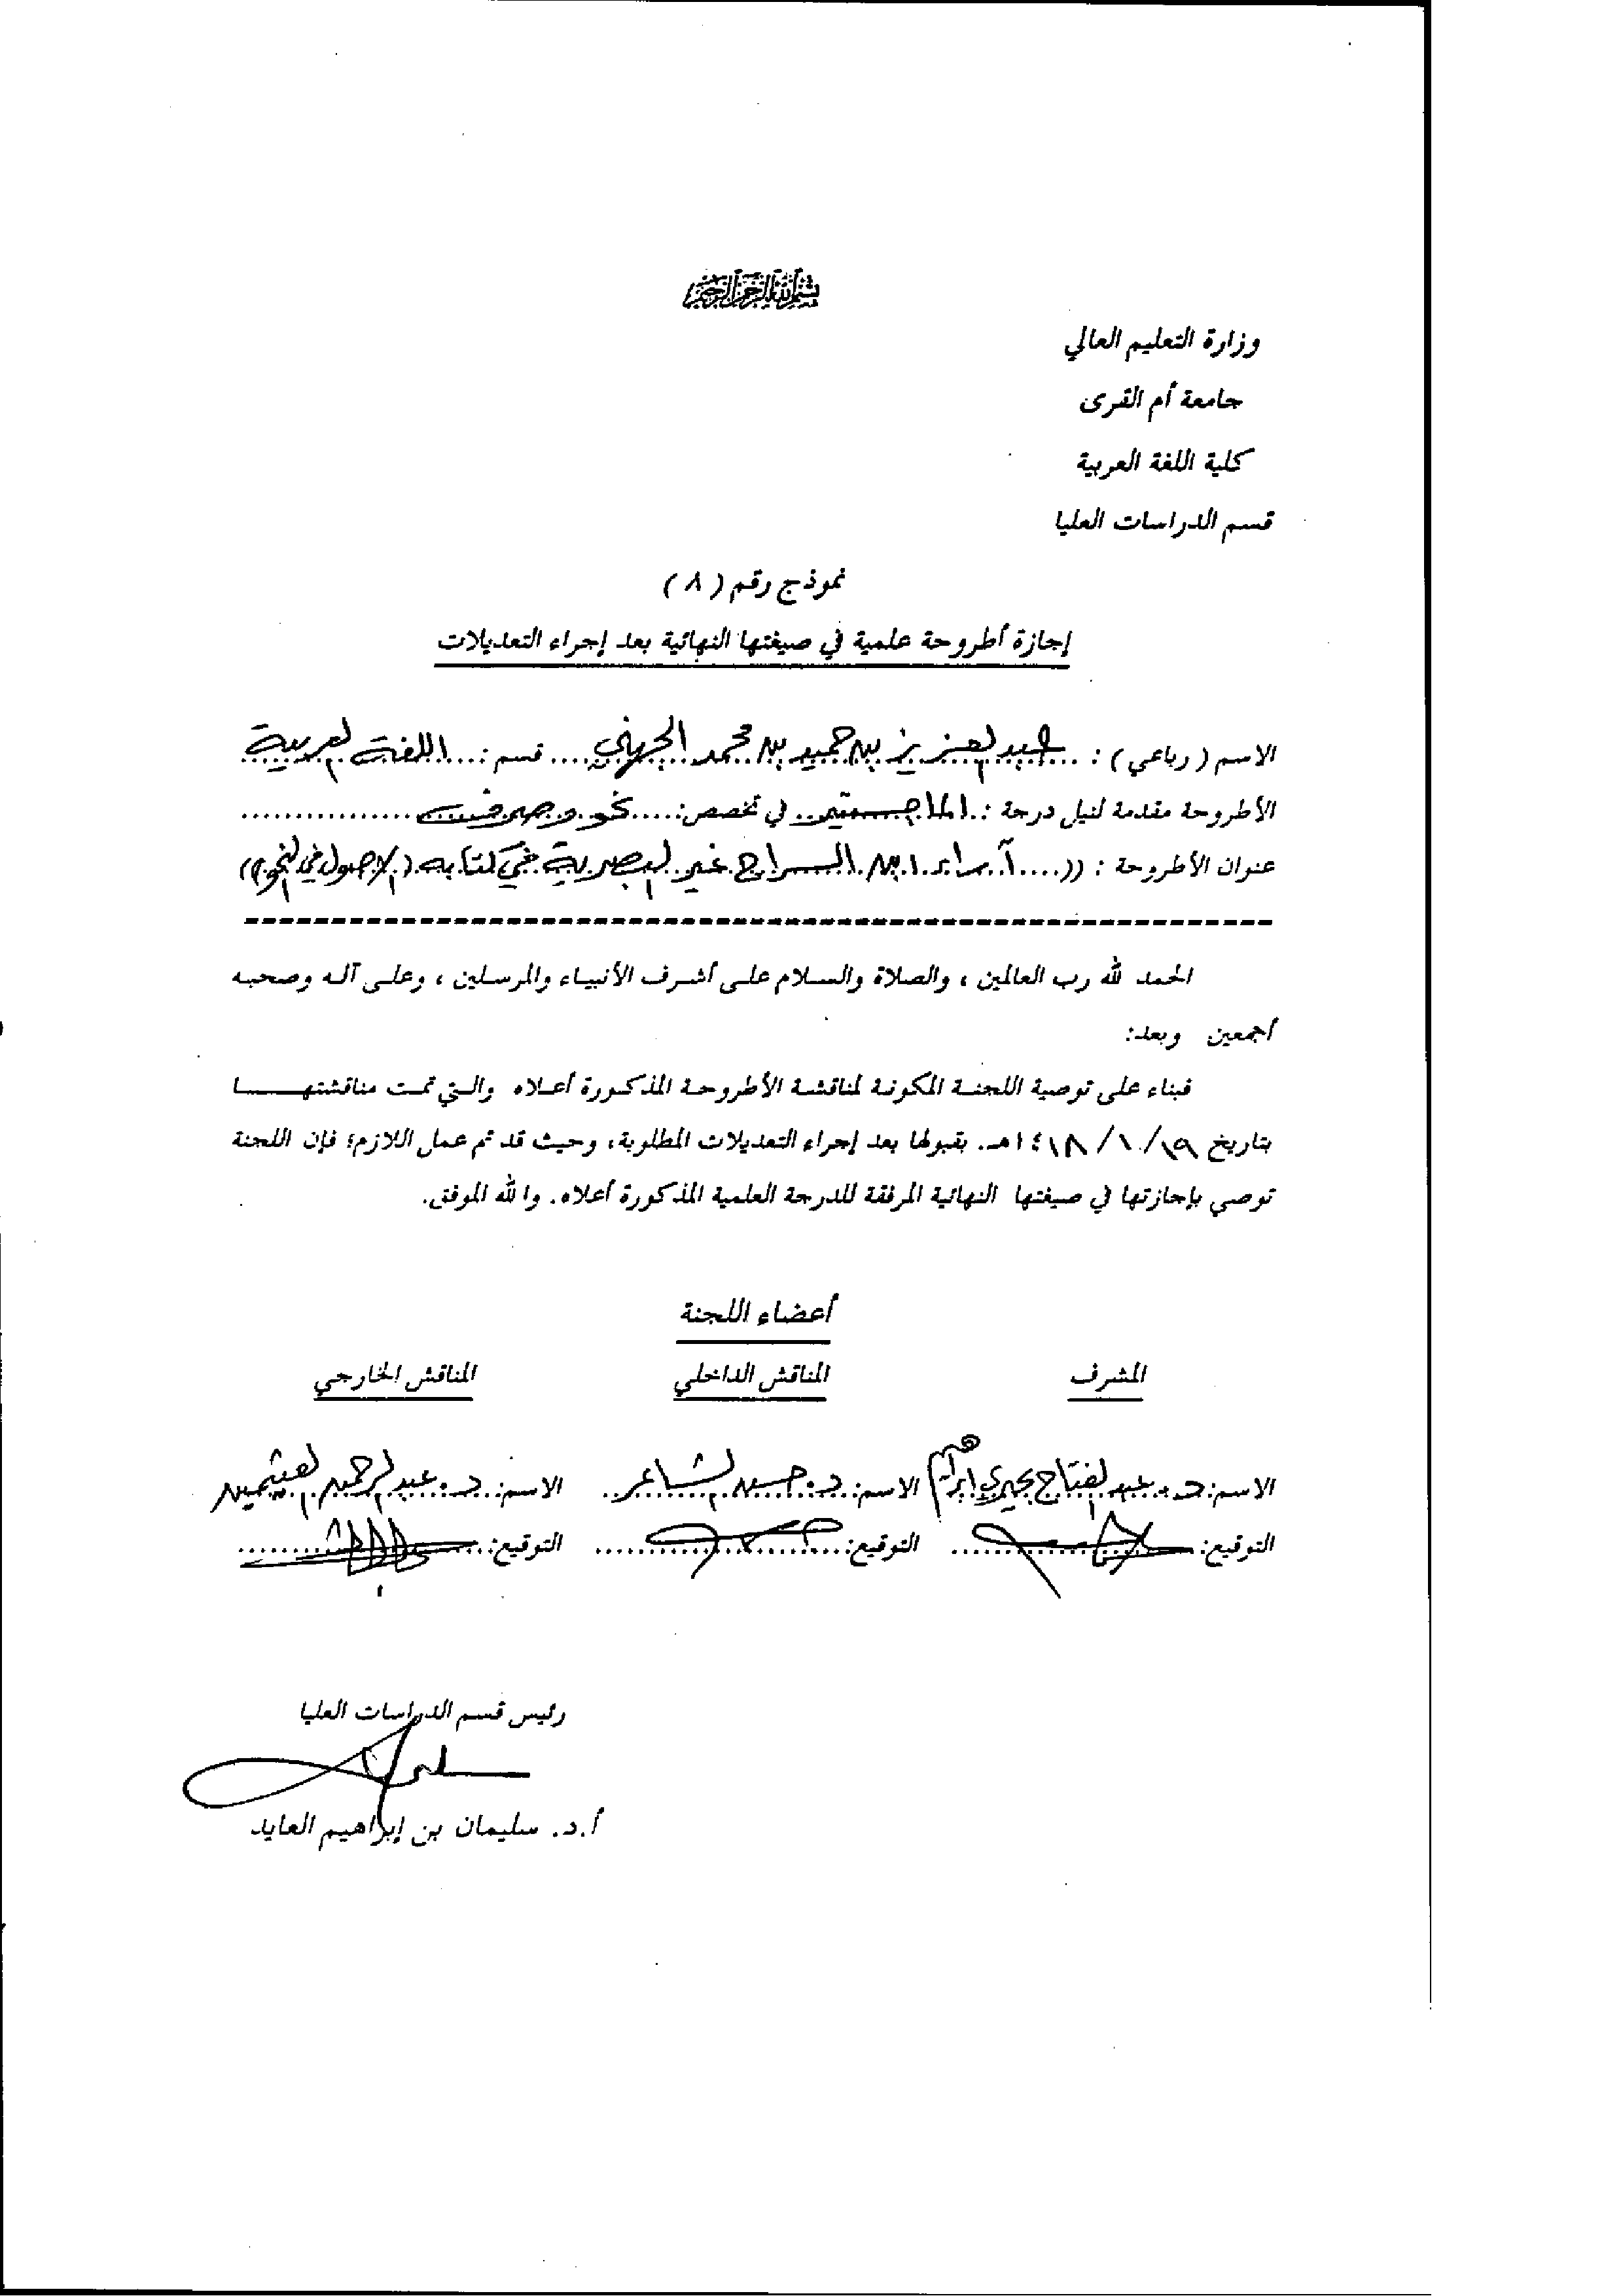 بسم الله الرحمن الرحيم
وزارة التعليم العالي
جامعة أم القرى
كلية اللغة العربية
قسم الدراسات العليا
نموذج رقم ( ٨ )
إجازة أطروحة علمية في صيغتها النهائية بعد إجراء التعديلات
الاسم ( رباعي ) : عبد العزيز بن حميد بن محمد الجهني .... قسم : ... اللغة العربية
الأطروحة مقدمة لنيل درجة : .. الماجستير .. في تخصص: ..... نحو وصرف ................
عنوان الأطروحة : (( .... آراء ابن السراج غير البصرية في كتابه ( الأصول في النحو )
الحمد لله رب العالمين ، والصلاة والسلام على أشرف الأنبياء والمرسلين ، وعلى آله وصحبه
أجمعين وبعد:
فبناء على توصية اللجنة المكونة لمناقشة الأطروحة المذكورة أعلاه والتي تمت مناقشتها
بتاريخ ١٩/ ١٠/ ١٤١٨هـ. بقبولها بعد إجراء التعديلات المطلوبة، وحيث قد تم عمل اللازم؛ فإن اللجنة
توصي بإجازتها في صيغتها النهائية المرفقة للدرجة العلمية المذكورة أعلاه. والله الموفق.
أعضاء اللجنة
المشرف المناقش الداخلي المناقش الخارجي
الاسم: د. عبد الفتاح بحيري إبراهيم الاسم: د. حسن الشاعر .. الاسم: د. عبد الرحمن العثيمين
التوقيع: التوقيع: التوقيع:
رئيس قسم الدراسات العليا
أ.د. سليمان بن إبراهيم العايد